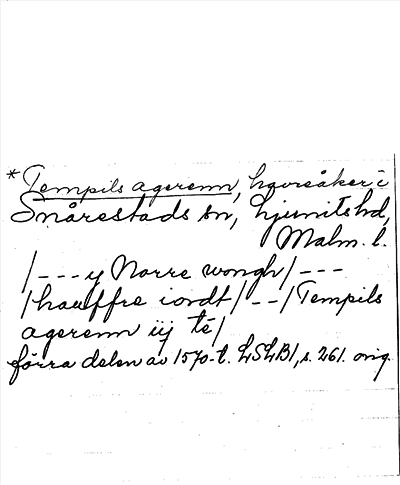 * Tempils agerenn, havreåker i
Snårestads sn, Ljunits hd,
Malm. l.
/--- y Norre wongh/ ---
/hauffre iordt/ -- /Tempils
agerenn iij te/
förra delen av 1570-t. LSLB1, s. 261. orig.